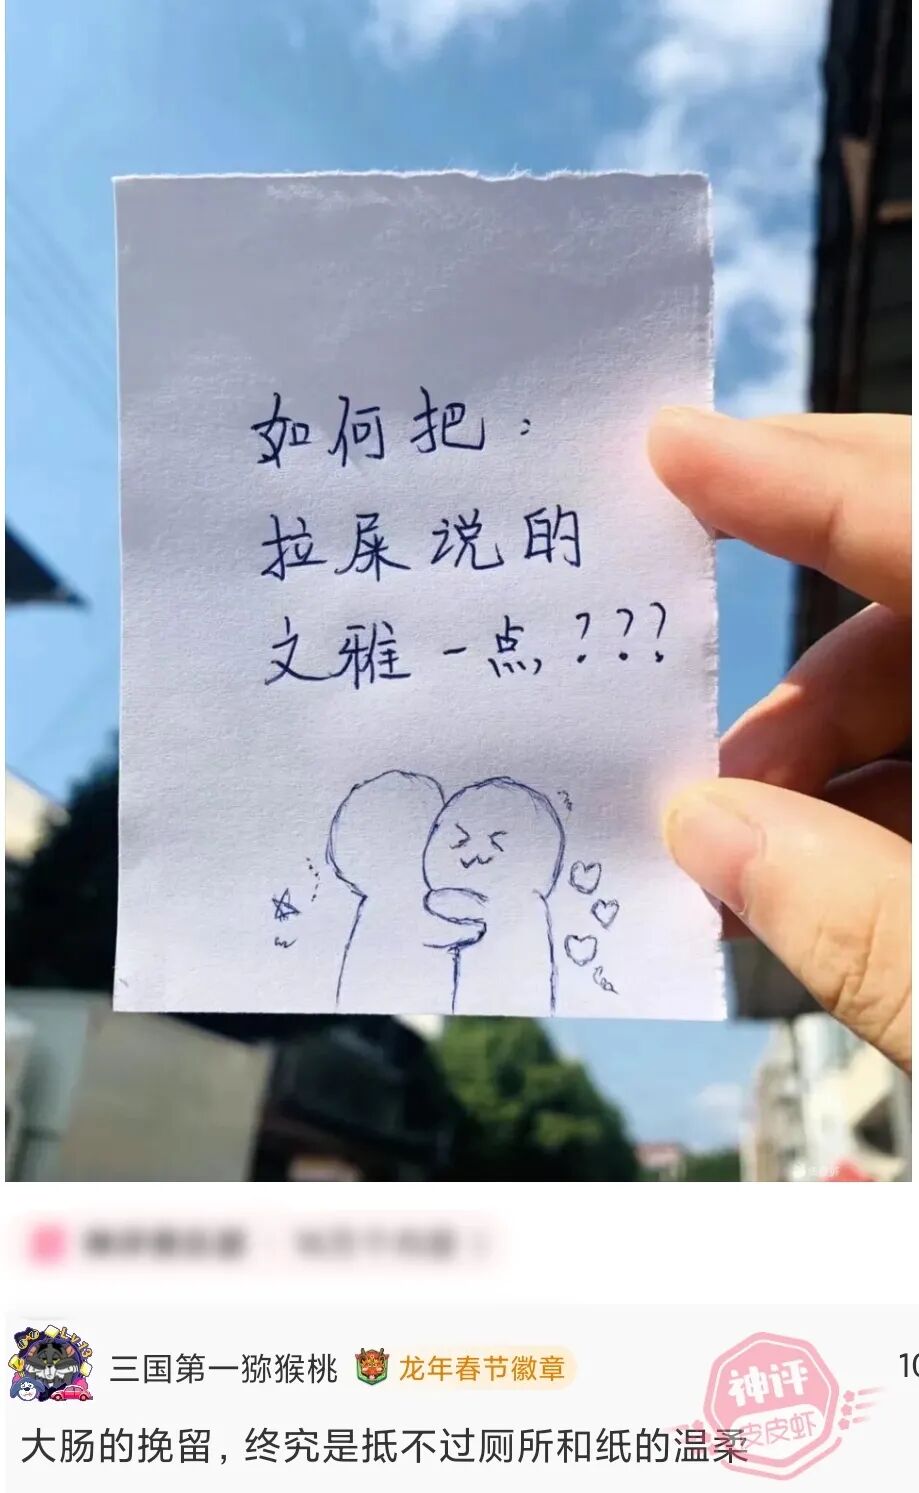 如何把：
拉屎说的
文雅一点，???
三国第一猕猴桃 龙年春节徽章 10
大肠的挽留，终究是抵不过厕所和纸的温柔
神评
皮皮虾